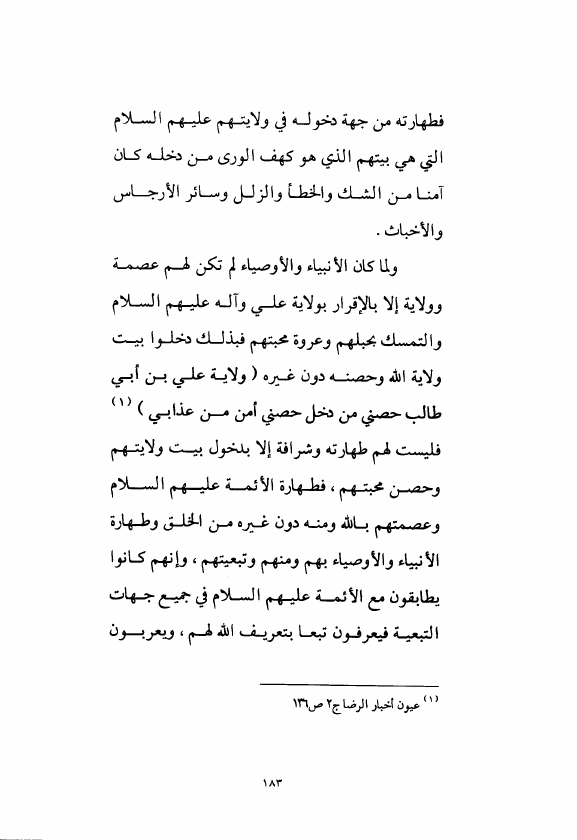 فطهارته من جهة دخوله في ولايتهم عليهم السلام
التي هي بيتهم الذي هو كهف الورى من دخله كان
آمنا من الشك والخطأ والزلل وسائر الأرجاس
والأخباث .
ولما كان الأنبياء والأوصياء لم تكن لهم عصمة
وولاية إلا بالإقرار بولاية علي وآله عليهم السلام
والتمسك بحبلهم وعروة محبتهم فبذلك دخلوا بيت
ولاية الله وحصنه دون غيره ( ولاية علي بن أبي
طالب حصني من دخل حصني أمن من عذابي ) (١)
فليست لهم طهارته وشرافة إلا بدخول بيت ولايتهم
وحصن محبتهم ، فطهارة الأئمة عليهم السلام
وعصمتهم بالله ومنه دون غيره من الخلق وطهارة
الأنبياء والأوصياء بهم ومنهم وتبعيتهم ، وإنهم كانوا
يطابقون مع الأئمة عليهم السلام في جميع جهات
التبعية فيعرفون تبعا بتعريف الله لهم ، ويعربون
(١) عيون أخبار الرضا ج٢ ص١٣٦
١٨٣